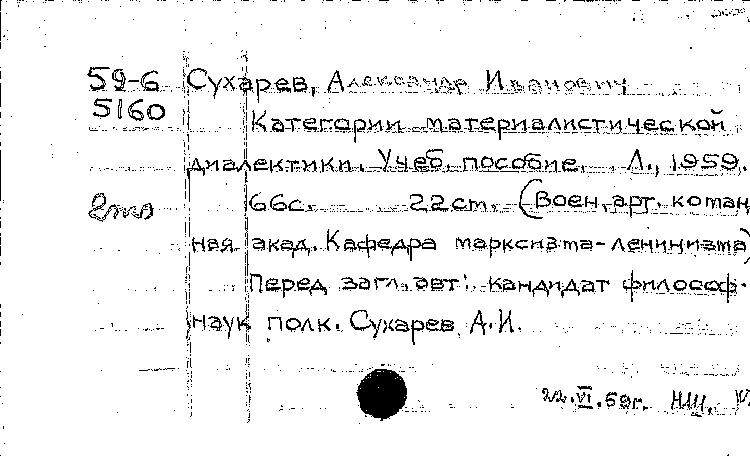 59-6 Сухарев, Александр Иванович
5160
Категории материалистической
диалектики. Учеб. пособие. Л., 1959.
66с. 22см. (Воен. арт. коман
ная акад. Кафедра марксизма-ленинизма)
Перед загл. авт: кандидат философ.
наук полк. Сухарев, А.И.
22.VI.59г. НШ.